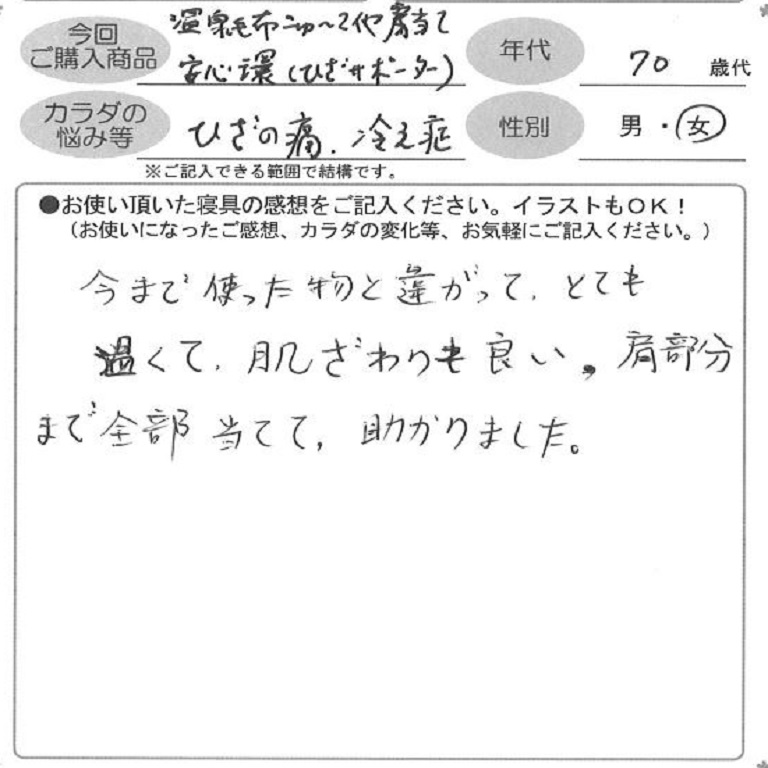 今回
ご購入商品
温泉毛布 肩当て
安心環(ひざサポーター)
年代
70 歳代
カラダの
悩み等
ひざの痛、冷え症
性別
男・女
※ご記入できる範囲で結構です。
●お使い頂いた寝具の感想をご記入ください。イラストもOK！
(お使いになったご感想、カラダの変化等、お気軽にご記入ください。)
今まで使った物と違がって、とても
温くて、肌ざわりも良い。肩部分
まで全部当てて、助かりました。